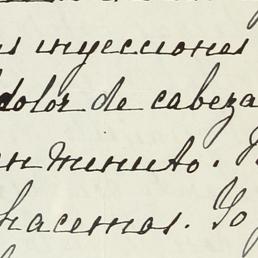 inyecciones
dolor de cabeza
un minuto.
hacemos. Yo